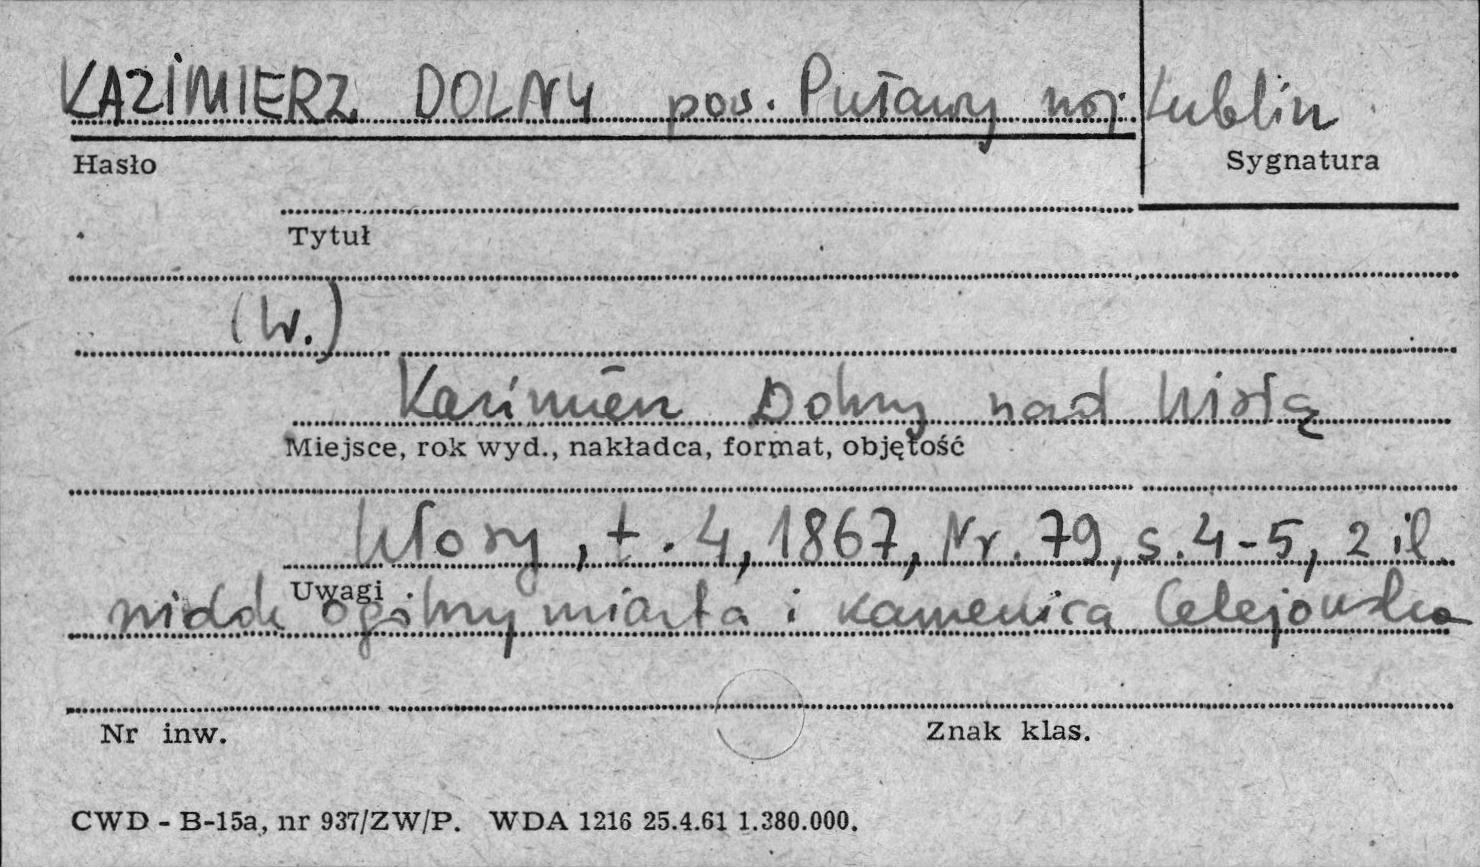 KAZIMIERZ DOLNY pow. Puławy woj. Lublin
Hasło
Sygnatura
Tytuł
(W.)
Kazimierz Dolny nad Wisłą
Miejsce, rok wyd., nakładca, format, objętość
Kłosy, t. 4, 1867, Nr. 79, s. 4-5, 2 il.
Uwagi
widok ogólny miasta i kamienica Celejowska
Nr inw.
Znak klas.
CWD - B-15a, nr 937/ZW/P. WDA 1216 25.4.61 1.380.000.